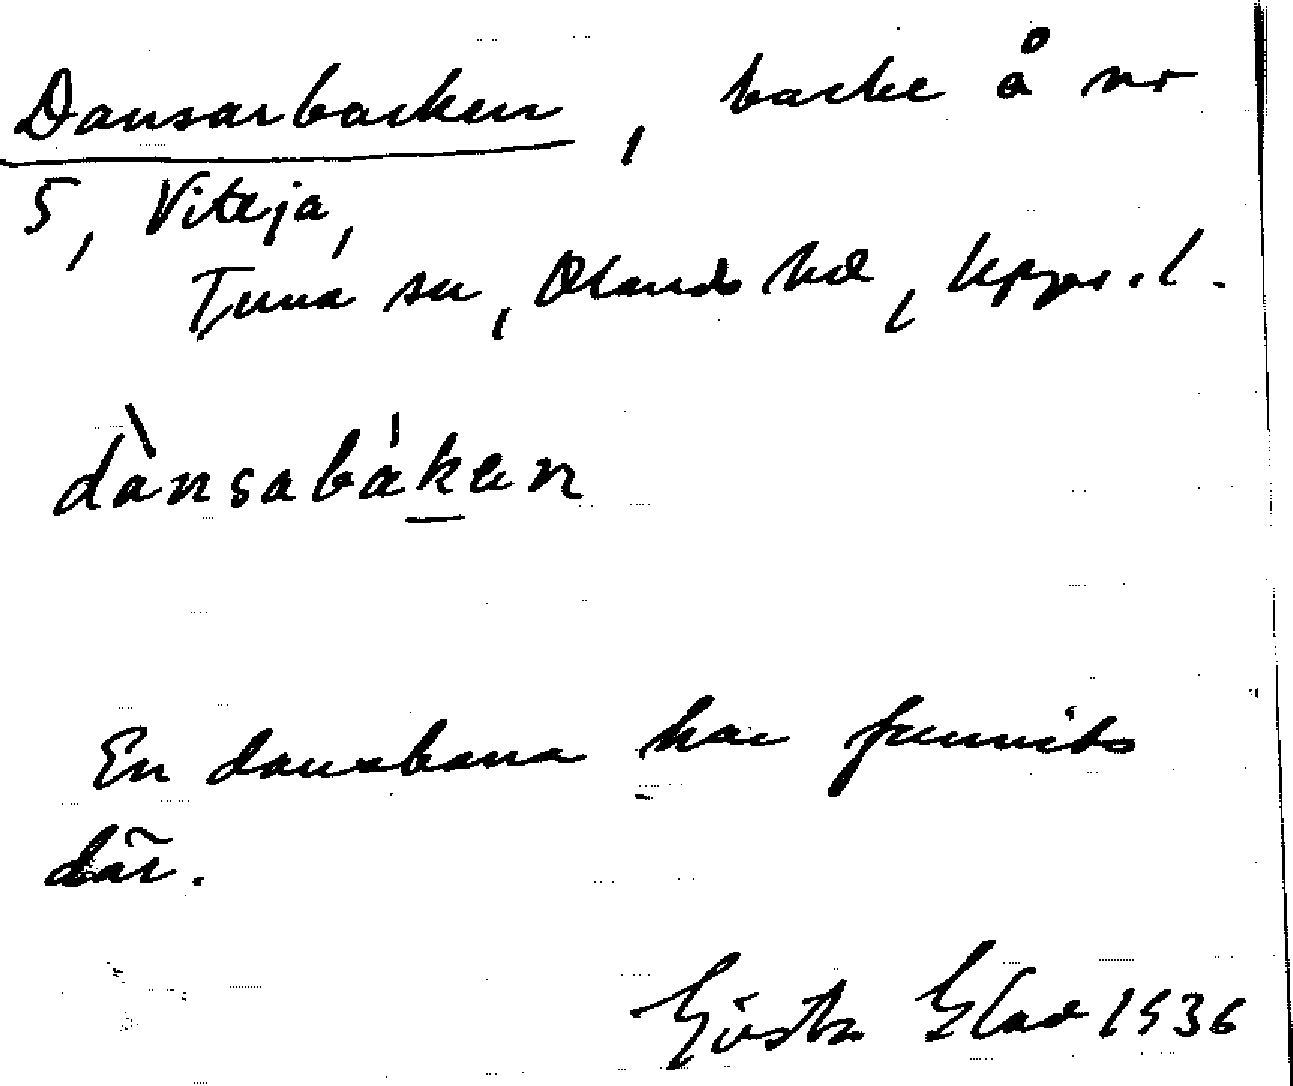 Dansarbacken, backe å nr
5, Viteja,
Tuna sn, Olands hd, Upps. l.
dànsabákɐn
En dansbana har funnits
där.
Gösta Elad 1936